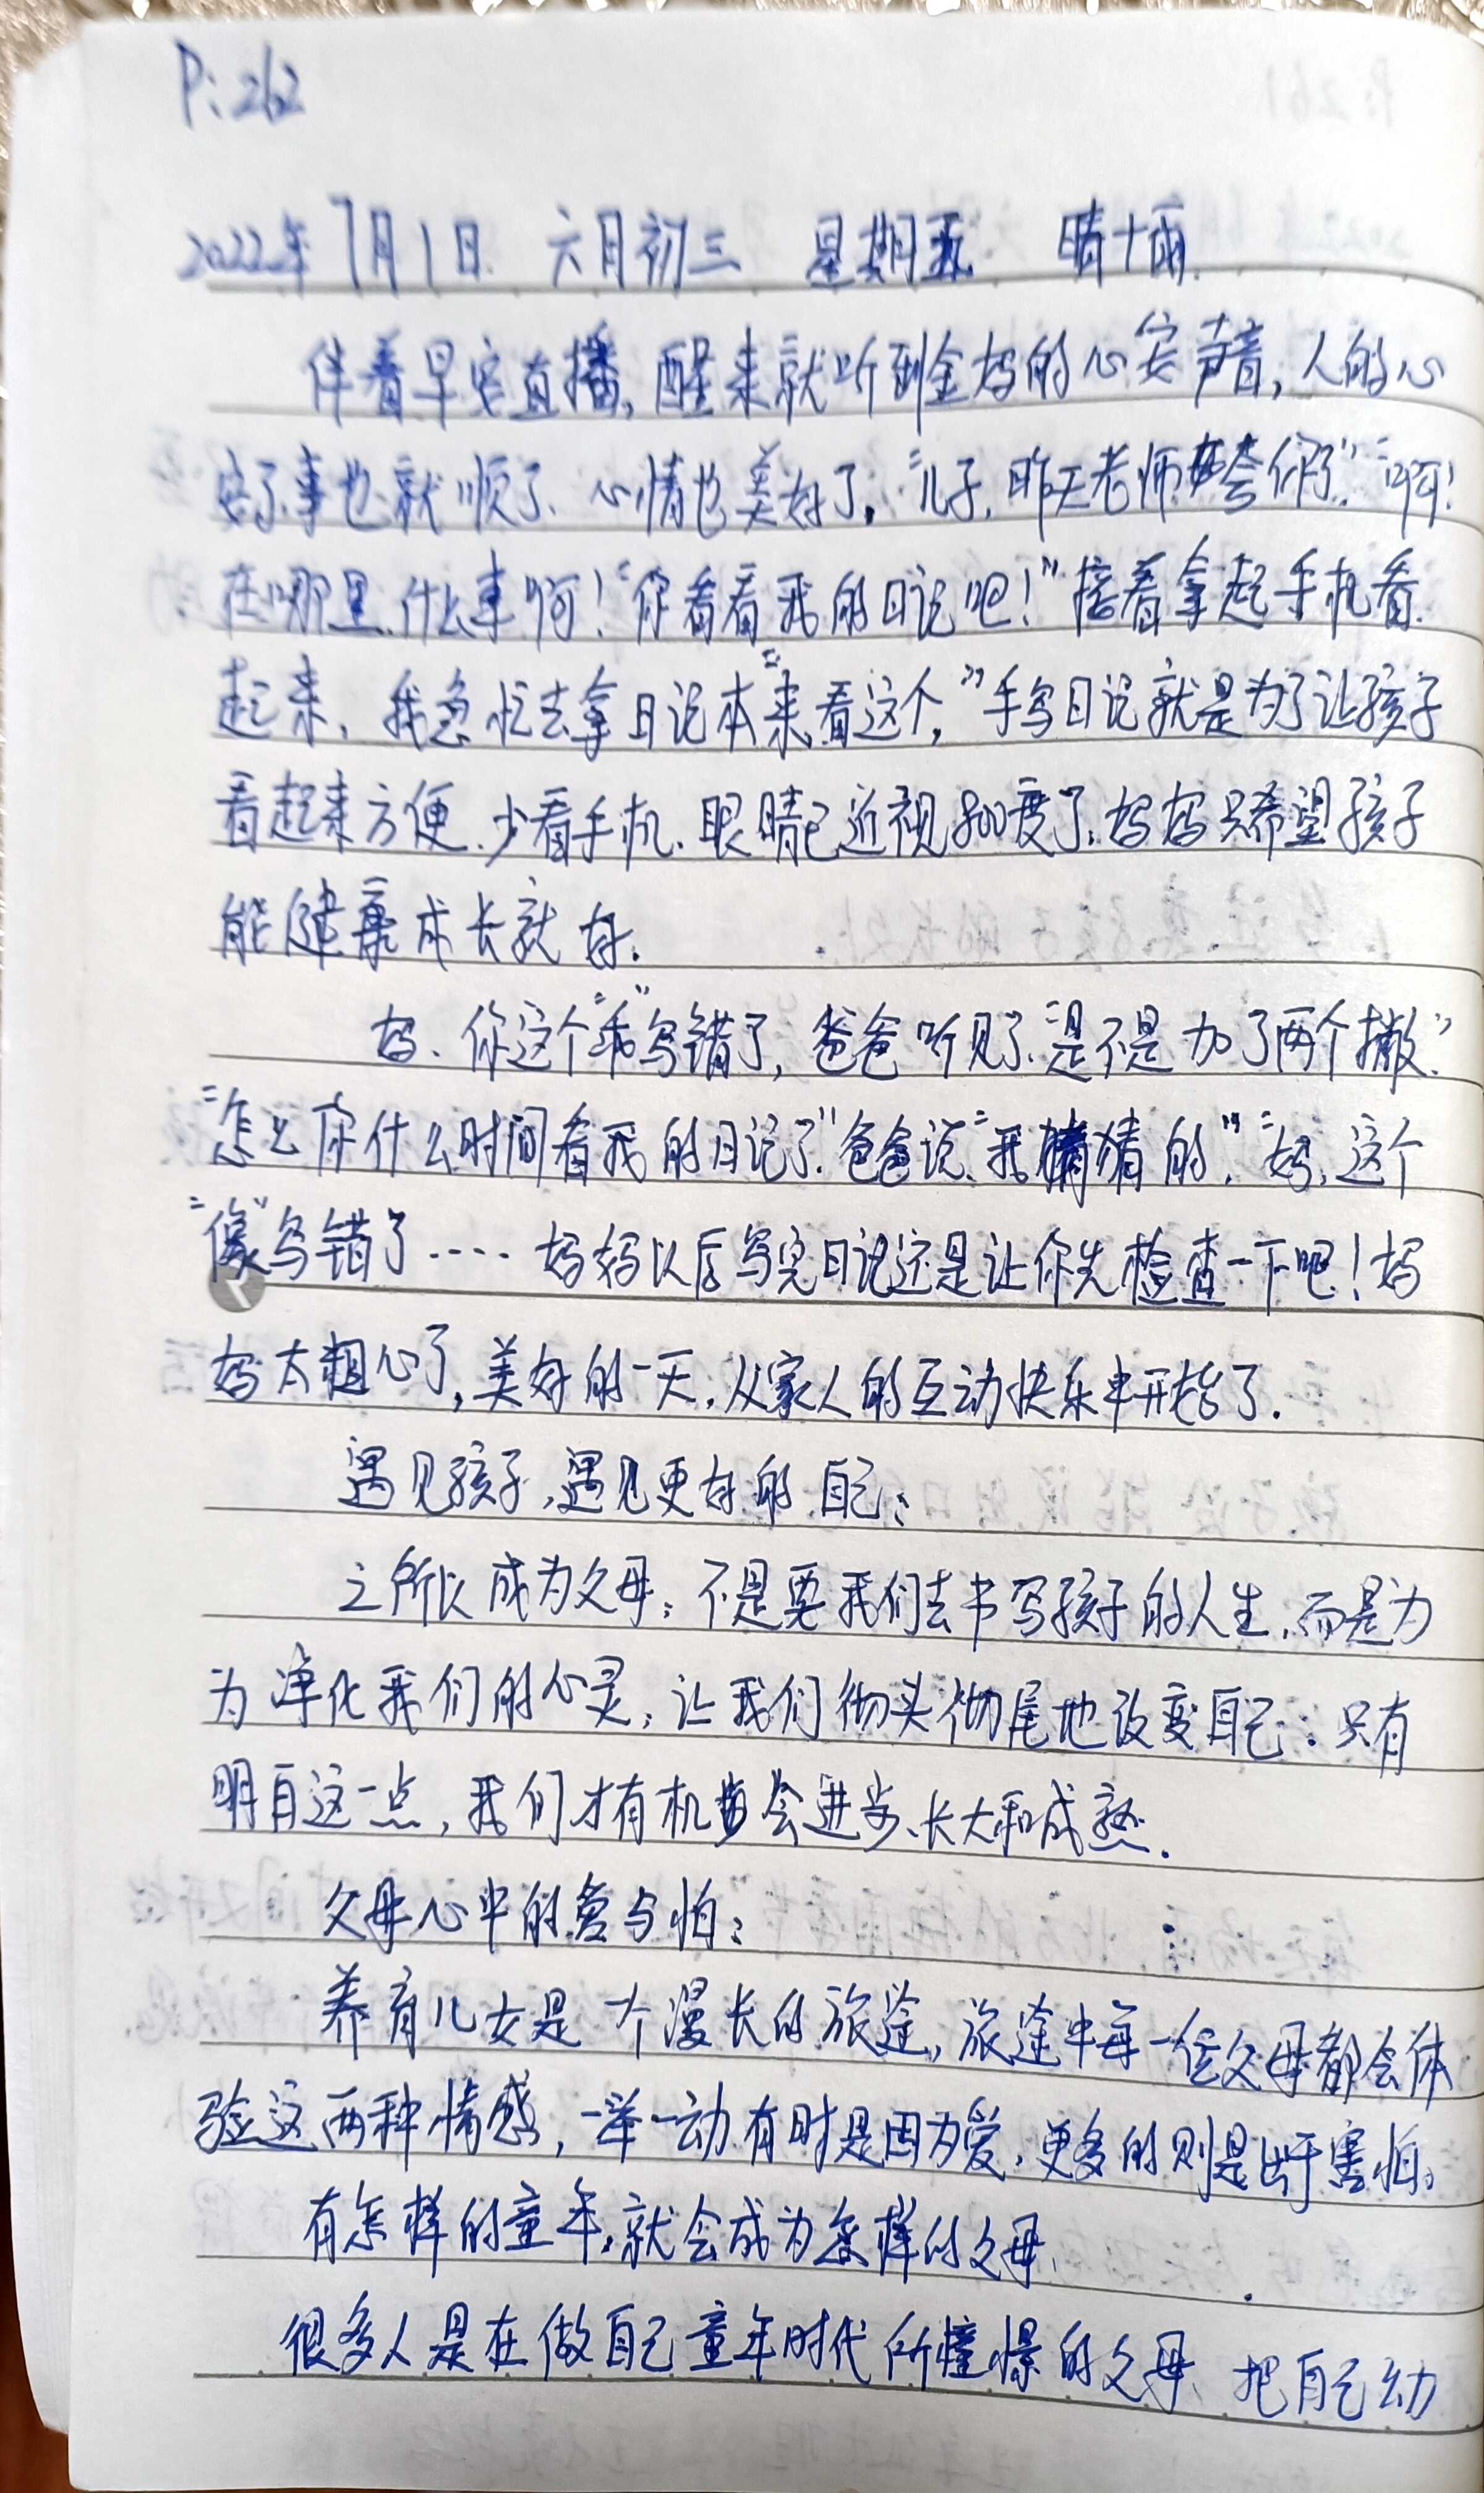 P:262
2022年7月1日 六月初三 星期五 晴十雨
伴着早安直播,醒来就听到金妈的心安声音,人的心
安了事也就顺了、心情也美好了。"儿子,昨天老师在夸你了""啊!
在哪里、什么事啊!"你看看我的日记吧!"接着拿起手机看
起来,我急忙去拿日记本"来看这个,"手写日记就是为了让孩子
看起来方便.少看手机.眼睛已近视800度了,妈妈只希望孩子
能健康成长就好.
妈、你这个"乖"写错了,爸爸听见了"是不是加了两个撇."
"怎么你什么时间看我的日记了"爸爸说"我猜的,""妈,这个
"像"写错了····妈妈以后写完日记还是让你先检查一下吧!妈
妈太粗心了,美好的一天,从家人的互动快乐中开始了.
遇见孩子,遇见更好的自己;
之所以成为父母;不是要我们去书写孩子的人生,而是为
为净化我们的心灵;让我们彻头彻尾地改变自己:只有
明白这一点,我们才有机会进步、长大和成熟.
父母心中的爱与怕;
养育儿女是一个漫长的旅途,旅途中每一位父母都会体
验这两种情感,一举一动有时是因为爱,更多的则是出于害怕。
有怎样的童年,就会成为怎样的父母.
很多人是在做自己童年时代所憧憬的父母、把自己幼